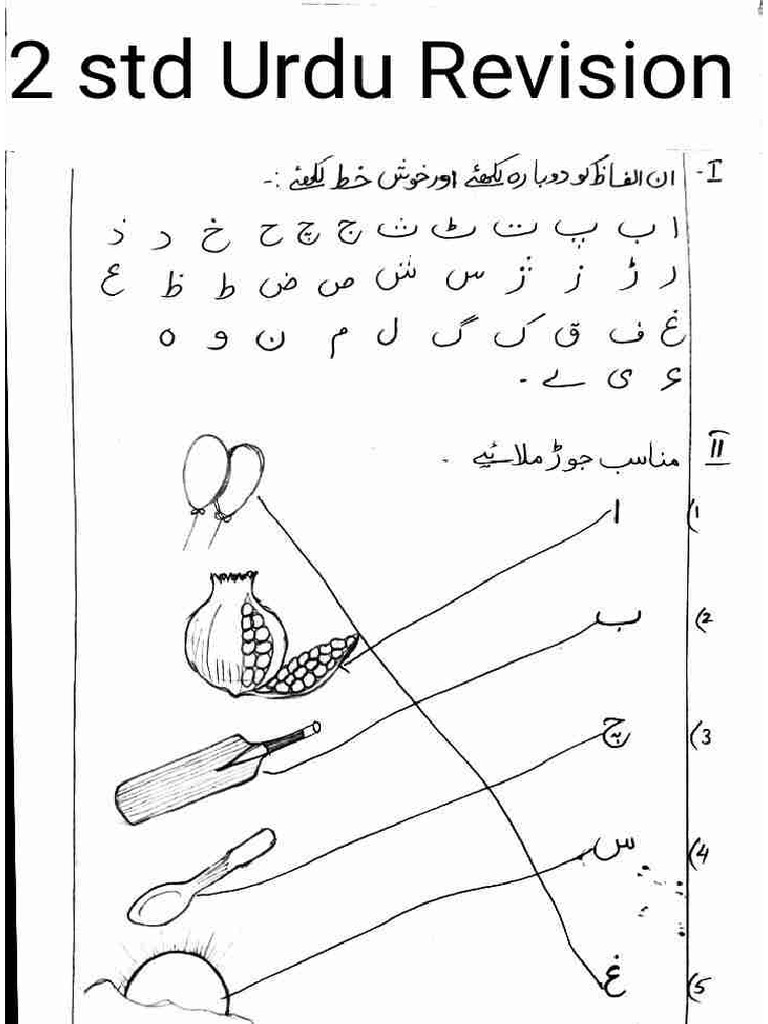 2 std Urdu Revision
I- ان الفاظ کو دوبارہ لکھئے اور خوش خط لکھئے :-
ا ب پ ت ٹ ث ج چ ح خ د ذ
ر ڑ ز ژ س ش ص ض ط ظ ع
غ ف ق ک گ ل م ن و ہ
ء ی ے -
II مناسب جوڑ ملائیے -
1) ا
2) ب
3) چ
4) س
5) غ